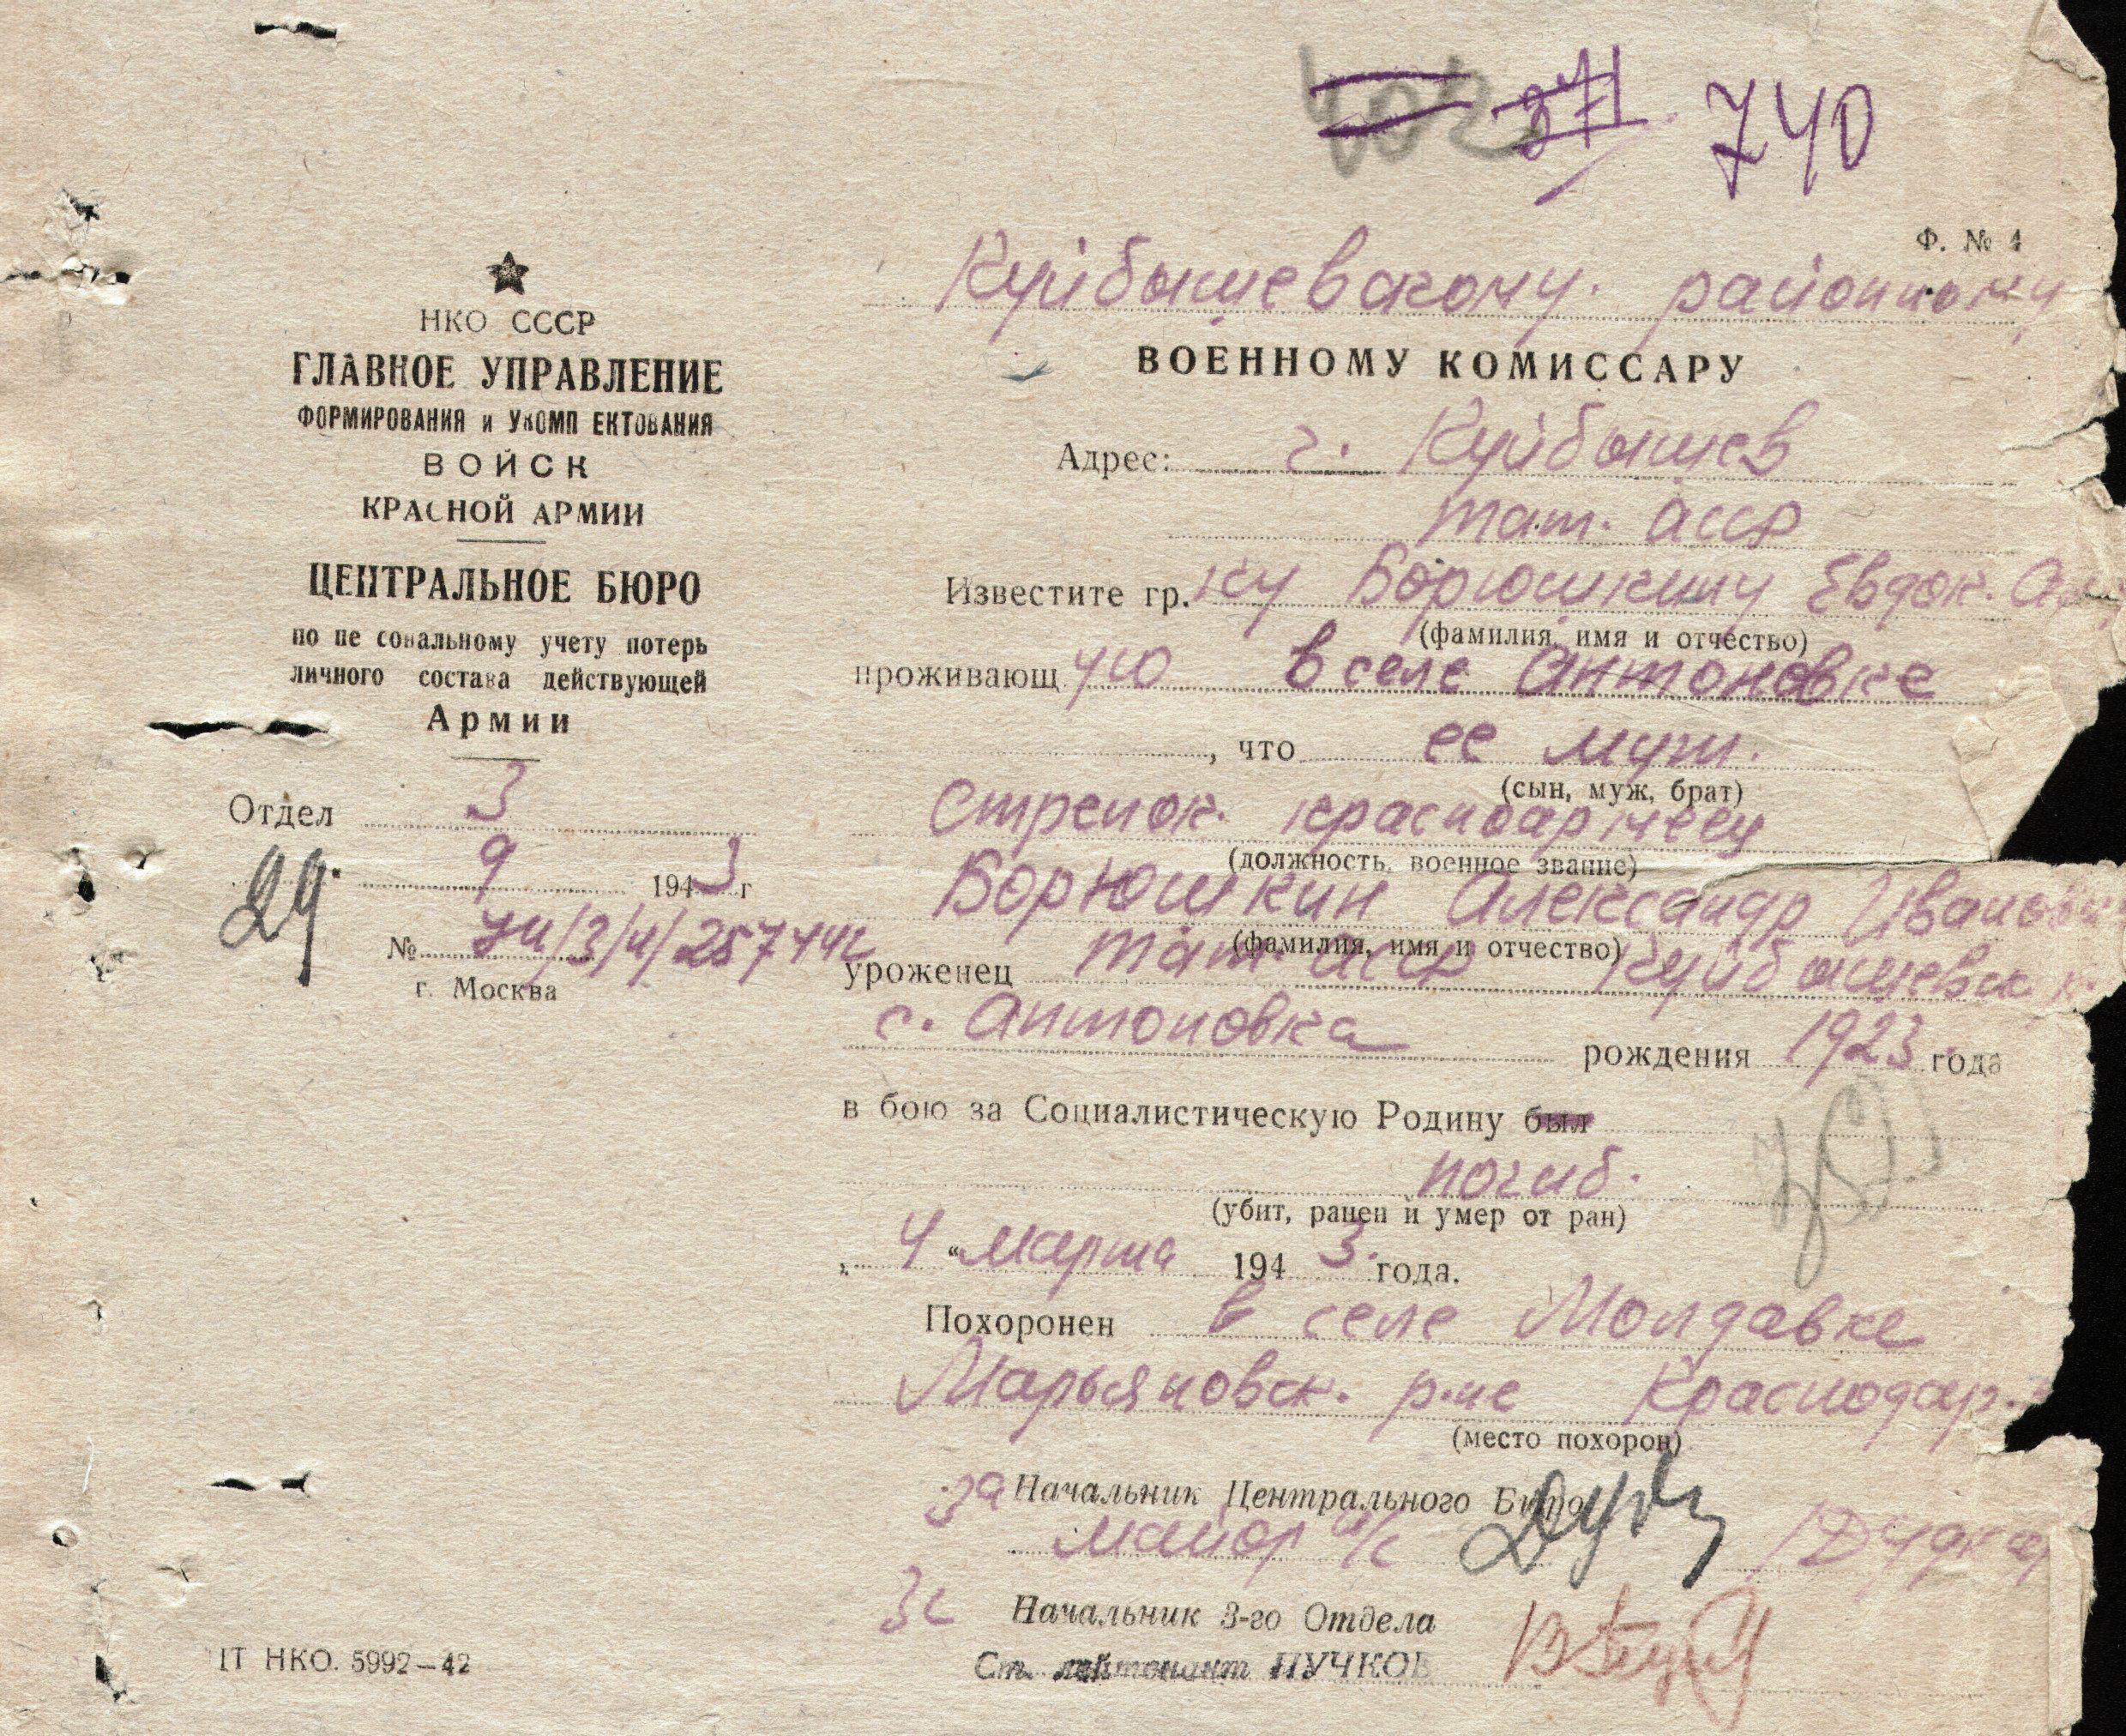 371 740
Ф. № 4
★
НКО СССР
ГЛАВНОЕ УПРАВЛЕНИЕ
ФОРМИРОВАНИЯ и УКОМП ЕКТОВАНИЯ
ВОЙСК
КРАСНОЙ АРМИИ
ЦЕНТРАЛЬНОЕ БЮРО
по пе сональному учету потерь
личного состава действующей
Армии
Отдел 3
29. 9 1943 г
№
г. Москва
IT НКО. 5992—42
Куйбышевскому районному
ВОЕННОМУ КОМИССАРУ
Адрес: г. Куйбышев
тат. асср
Известите гр. ку Борюшкину Евдок.
(фамилия, имя и отчество)
проживающ ую в селе Антоновке
, что ее муж.
(сын, муж, брат)
Стрелок. красноармеец
(должность, военное звание)
Борюшкин Александр Иванови
(фамилия, имя и отчество)
уроженец тат. асср Куйбышевск
с. Антоновка рождения 1923 года
в бою за Социалистическую Родину был
погиб.
(убит, ранен и умер от ран)
„ 4 “ марта 194 3. года.
Похоронен в селе Молдавке
Марьяновск. р-не Краснодар.
(место похорон)
за Начальник Центрального Бюро
майор а/с
Начальник 3-го Отдела
Ст. лейтенант ПУЧКОВ